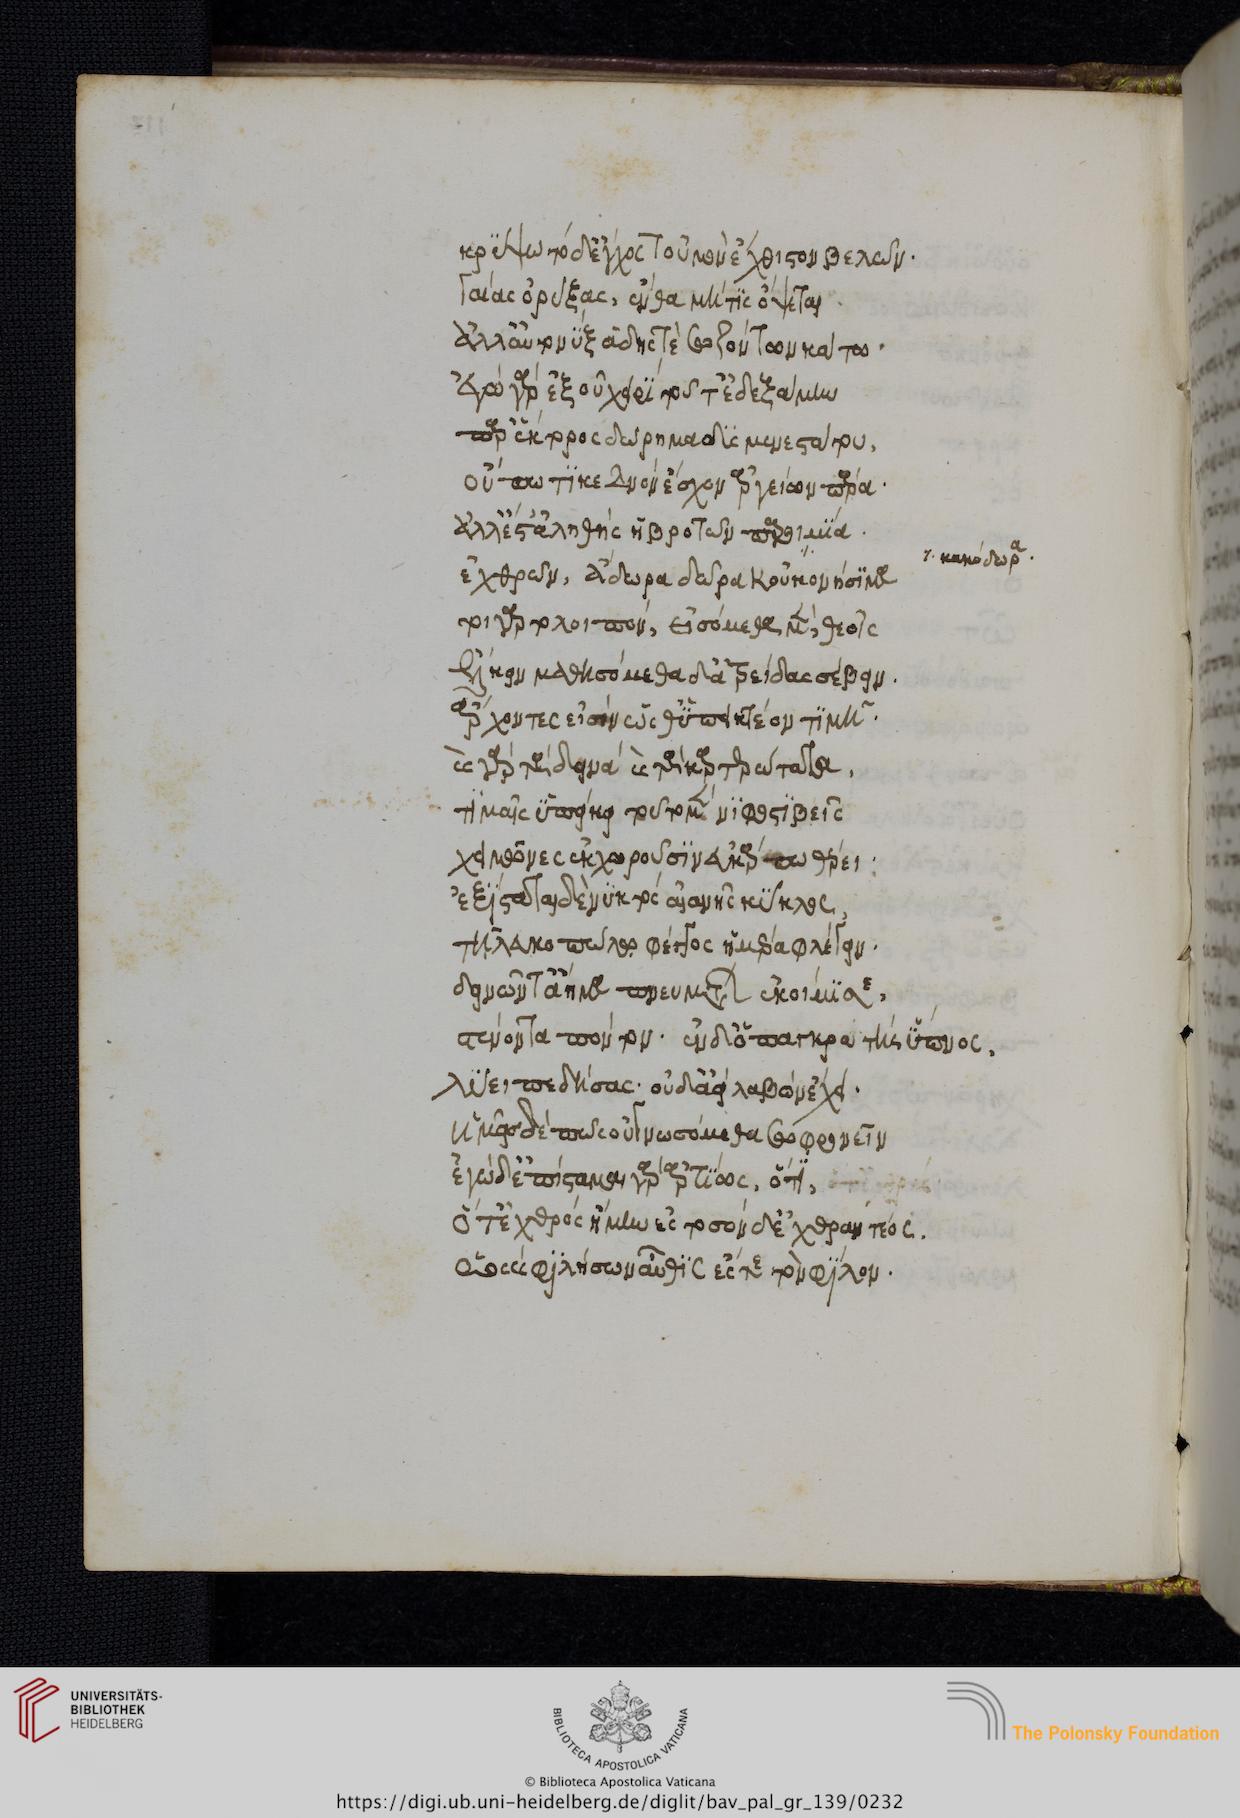 κρύψω τόδ' ἔγχος τοὐμὸν ἔχθιστον βελῶν·
γαίας ὀρύξας, ἔνθα μή τις ὄψεται·
ἀλλ' αὐτὸ νὺξ ἅδης τε σωζόντων κάτω·
ἐγὼ γὰρ ἐξ οὗ χειρὶ τοῦτ' ἐδεξάμην
παρ' ἕκτορος δώρημα δυσμενεστάτου,
οὔπω τι κεδνὸν ἔσχον ἀργείων πάρα·
ἀλλ' ἔστ' ἀληθὴς ἡ βροτῶν παροιμία·
ἐχθρῶν, ἄδωρα δῶρα κοὐκ ὀνήσιμα
γ. κακόδωρα.
τοιγὰρ τὸ λοιπὸν, εἰσόμεθα μὲν, θεοῖς
εἴκειν μαθησόμεθα δ' ἀτρείδας σέβειν.
ἄρχοντες εἰσὶν ὥσθ' ὑπεικτέον τί μή·
καὶ γὰρ τὰ δεινὰ καὶ τὰ καρτερώτατα,
τιμαῖς ὑπείκει τοῦτο μὲν νιφοστιβεῖς
χειμῶνες ἐκχωροῦσιν εὐκάρπω θέρει·
ἐξίσταται δὲ νυκτὸς αἰανῆς κύκλος,
τῆ λευκοπώλω φέγγος ἡμέρα φλέγειν·
δεινῶν τ' ἄημα πνευμάτων ἐκοίμισε,
στένοντα πόντον· ἐν δ' ὁ παγκρατὴς ὕπνος,
λύει πεδήσας· οὐδ' ἀεὶ λαβὼν ἔχει·
ἡμεῖς δὲ πῶς οὐ γνωσόμεθα σωφρονεῖν
ἐγὼ δ' ἐπίσταμαι γὰρ ἀρτίως, ὅτι,
ὅ τ' ἐχθρὸς ἡμῖν ἐς τοσόνδ' ἐχθραντέος.
ὡς καὶ φιλήσων αὖθις ἔς τε τὸν φίλον·
UNIVERSITÄTS-
BIBLIOTHEK
HEIDELBERG
BIBLIOTECA APOSTOLICA VATICANA
The Polonsky Foundation
© Biblioteca Apostolica Vaticana
https://digi.ub.uni-heidelberg.de/diglit/bav_pal_gr_139/0232